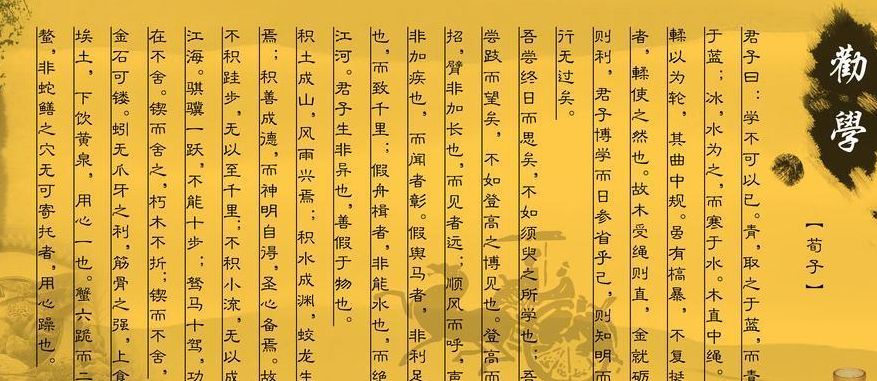 勸學
【荀子】
君子曰：学不可以已。青，取之于蓝，而青
于蓝；冰，水为之，而寒于水。木直中绳。
輮以为轮，其曲中规。虽有槁暴，不复挺
者，輮使之然也。故木受绳则直，金就砺
则利，君子博学而日参省乎己，则知明而
行无过矣。
吾尝终日而思矣，不如须臾之所学也；吾
尝跂而望矣，不如登高之博见也。登高而
招，臂非加长也，而见者远；顺风而呼，声
非加疾也，而闻者彰。假舆马者，非利足
也，而致千里；假舟楫者，非能水也，而绝
江河。君子生非异也，善假于物也。
积土成山，风雨兴焉；积水成渊，蛟龙生
焉；积善成德，而神明自得，圣心备焉。故
不积跬步，无以至千里；不积小流，无以成
江海。骐骥一跃，不能十步；驽马十驾，功
在不舍。锲而舍之，朽木不折；锲而不舍，
金石可镂。蚓无爪牙之利，筋骨之强，上食
埃土，下饮黄泉，用心一也。蟹六跪而二
螯，非蛇鳝之穴无可寄托者，用心躁也。